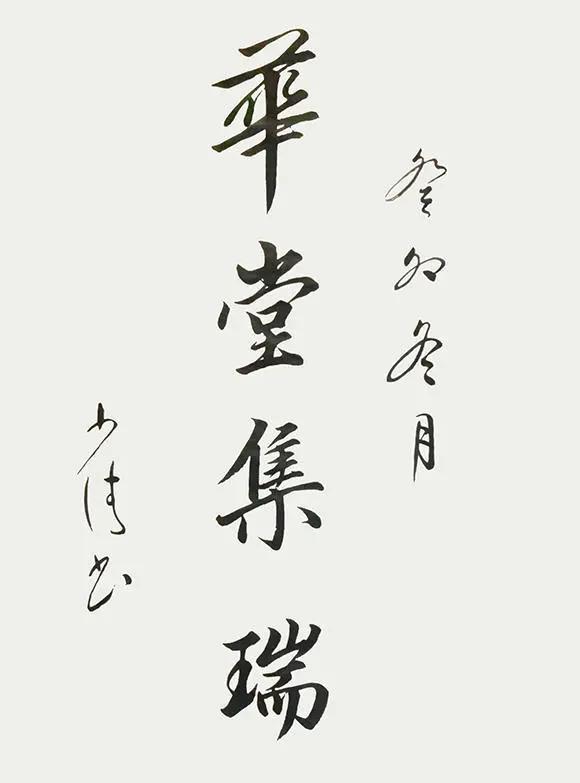 癸卯冬月
華堂集瑞
少清书